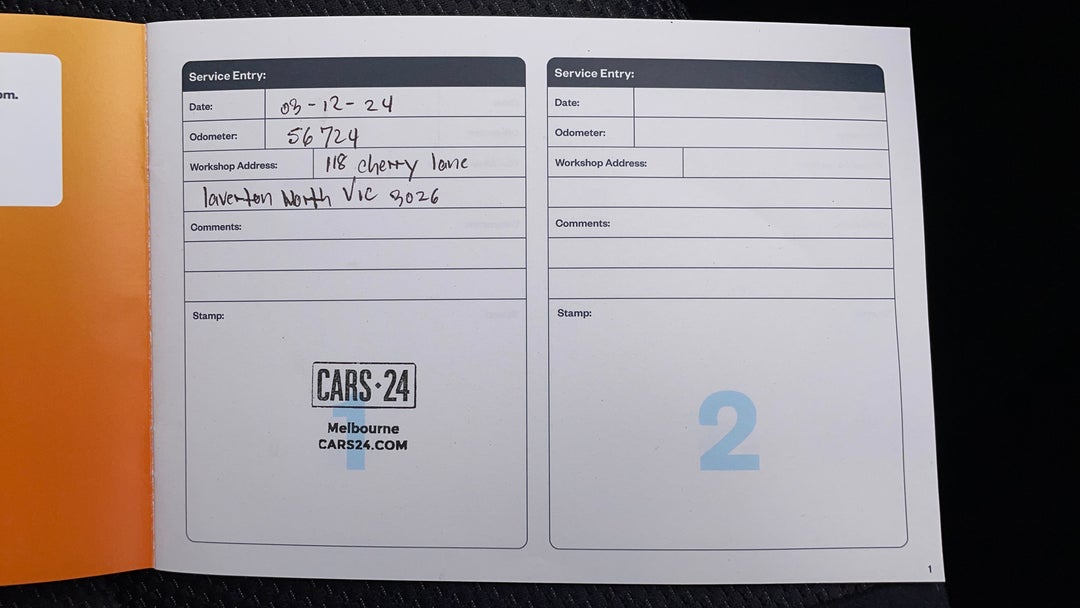 om.
Service Entry:
Date: 03-12-24
Odometer: 56724
Workshop Address: 118 cherry lane
laverton North VIC 3026
Comments:
Stamp:
CARS·24
1
Melbourne
CARS24.COM
Service Entry:
Date:
Odometer:
Workshop Address:
Comments:
Stamp:
2
1